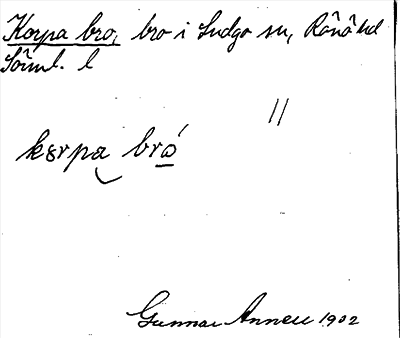 Korpa bro, bro i Ludgo sn, Rönö hd
Söml. l
//
kɞrpa bró
Gunnar Annell 1902